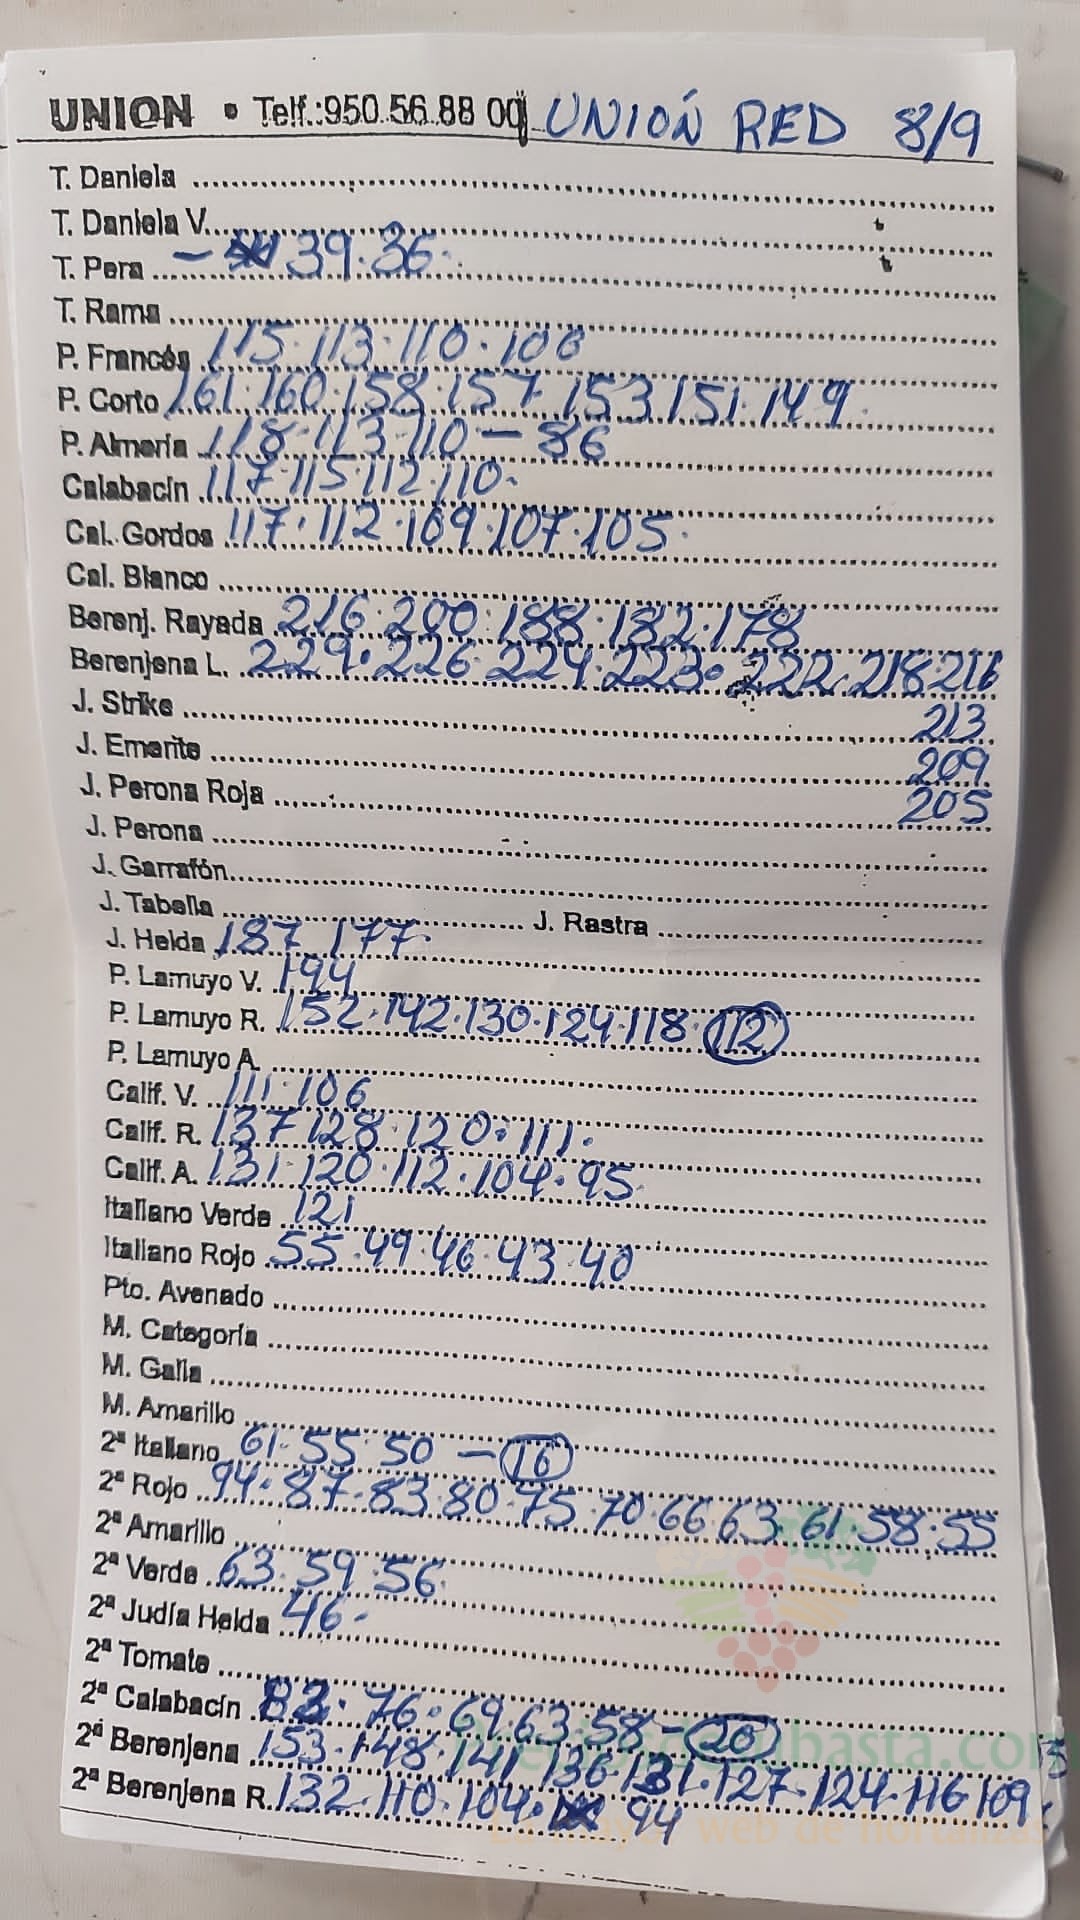 UNION • Telf.:950.56.88 00 UNIÓN RED 8/9
T. Daniela
T. Daniela V.
T. Pera - 39.36.
T. Rama
P. Francés 115.113.110.106
P. Corto 161.160.158.157.153.151.149.
P. Almería 118.113.110-86
Calabacín 117.115.112.110.
Cal. Gordos 117.112.109.107.105.
Cal. Blanco
Berenj. Rayada 216.200.188.182.178
Berenjena L. 229.226.224.223.222.218.216
J. Strike 213
J. Emerite 209
J. Perona Roja 205
J. Perona
J. Garrafón
J. Tabella J. Rastra
J. Helda 187 177.
P. Lamuyo V. 194
P. Lamuyo R. 152.142.130.124.118.112
P. Lamuyo A.
Calif. V. 111.106
Calif. R. 137 128.120.111.
Calif. A. 131.120.112.104.95.
Italiano Verde 121
Italiano Rojo 55.49.46.43.40
Pto. Avenado
M. Categoría
M. Galia
M. Amarillo
2ª Italiano 61.55 50 - 16
2ª Rojo 94.87.83.80.75.70.66 63.61.58.55
2ª Amarillo
2ª Verde 63.59.56
2ª Judía Helda 46.
2ª Tomate
2ª Calabacín 76.69.63.58-20
2ª Berenjena 153.148.141 136.131.127.124.116 109
2ª Berenjena R. 132.110.104. 94
La mayor web de hortalizas